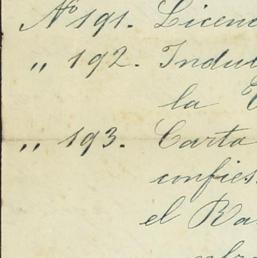 Nº 191. Licenc
„ 192. Indu
la
„ 193. Carta
confies
el Ra